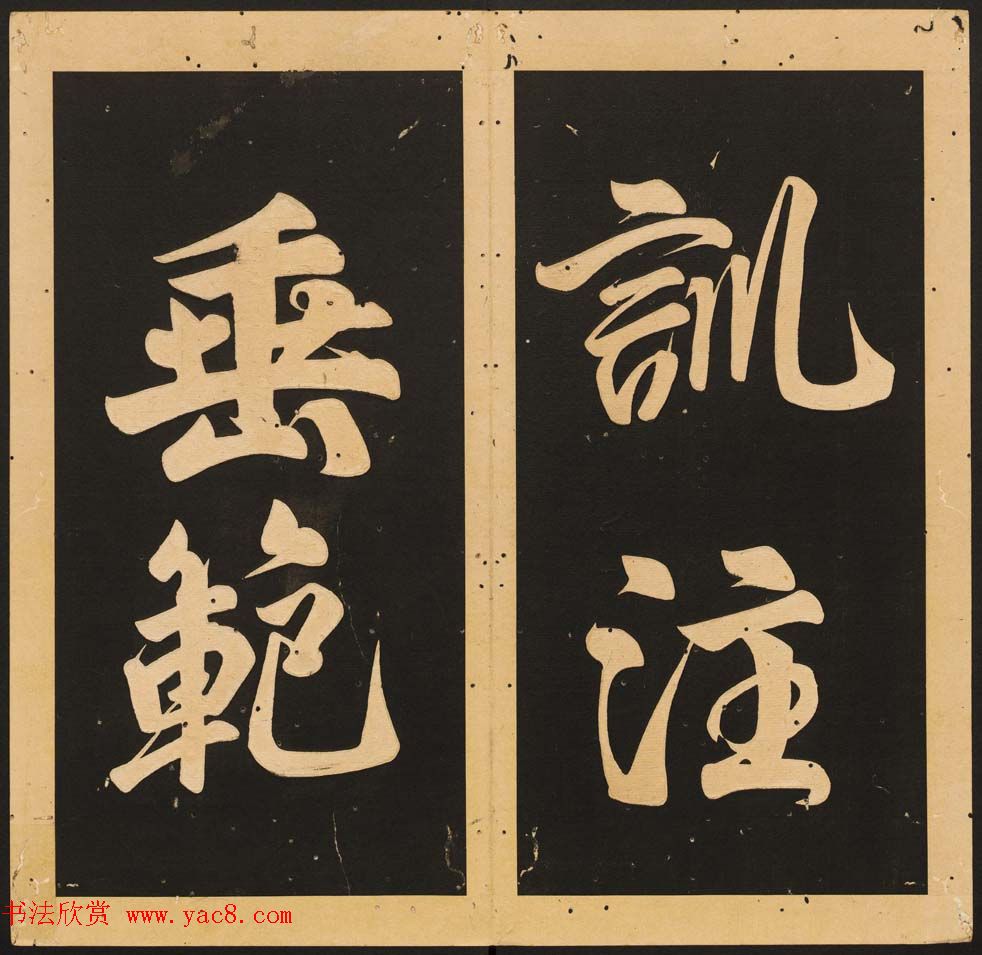 訓注
垂範
书法欣赏 www.yac8.com